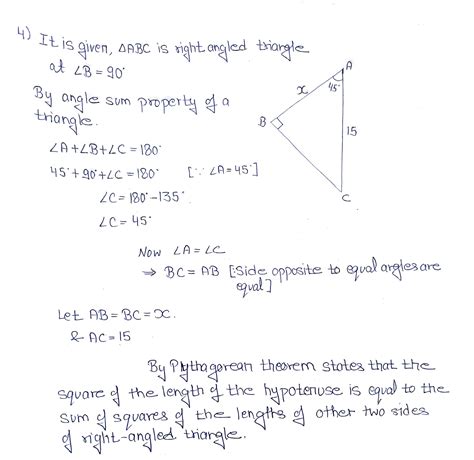 4) It is given, ΔABC is right angled triangle
at ∠B = 90°
By angle sum property of a
triangle.
∠A+∠B+∠C = 180°
45°+90°+∠C = 180° [∵ ∠A=45°]
∠C = 180°-135°
∠C = 45°
A
45°
x
B
15
C
Now ∠A = ∠C
⇒ BC = AB [Side opposite to equal angles are
equal]
Let AB = BC = x.
& AC = 15
By Pythagorean theorem states that the
square of the length of the hypotenuse is equal to the
sum of squares of the lengths of other two sides
of right-angled triangle.